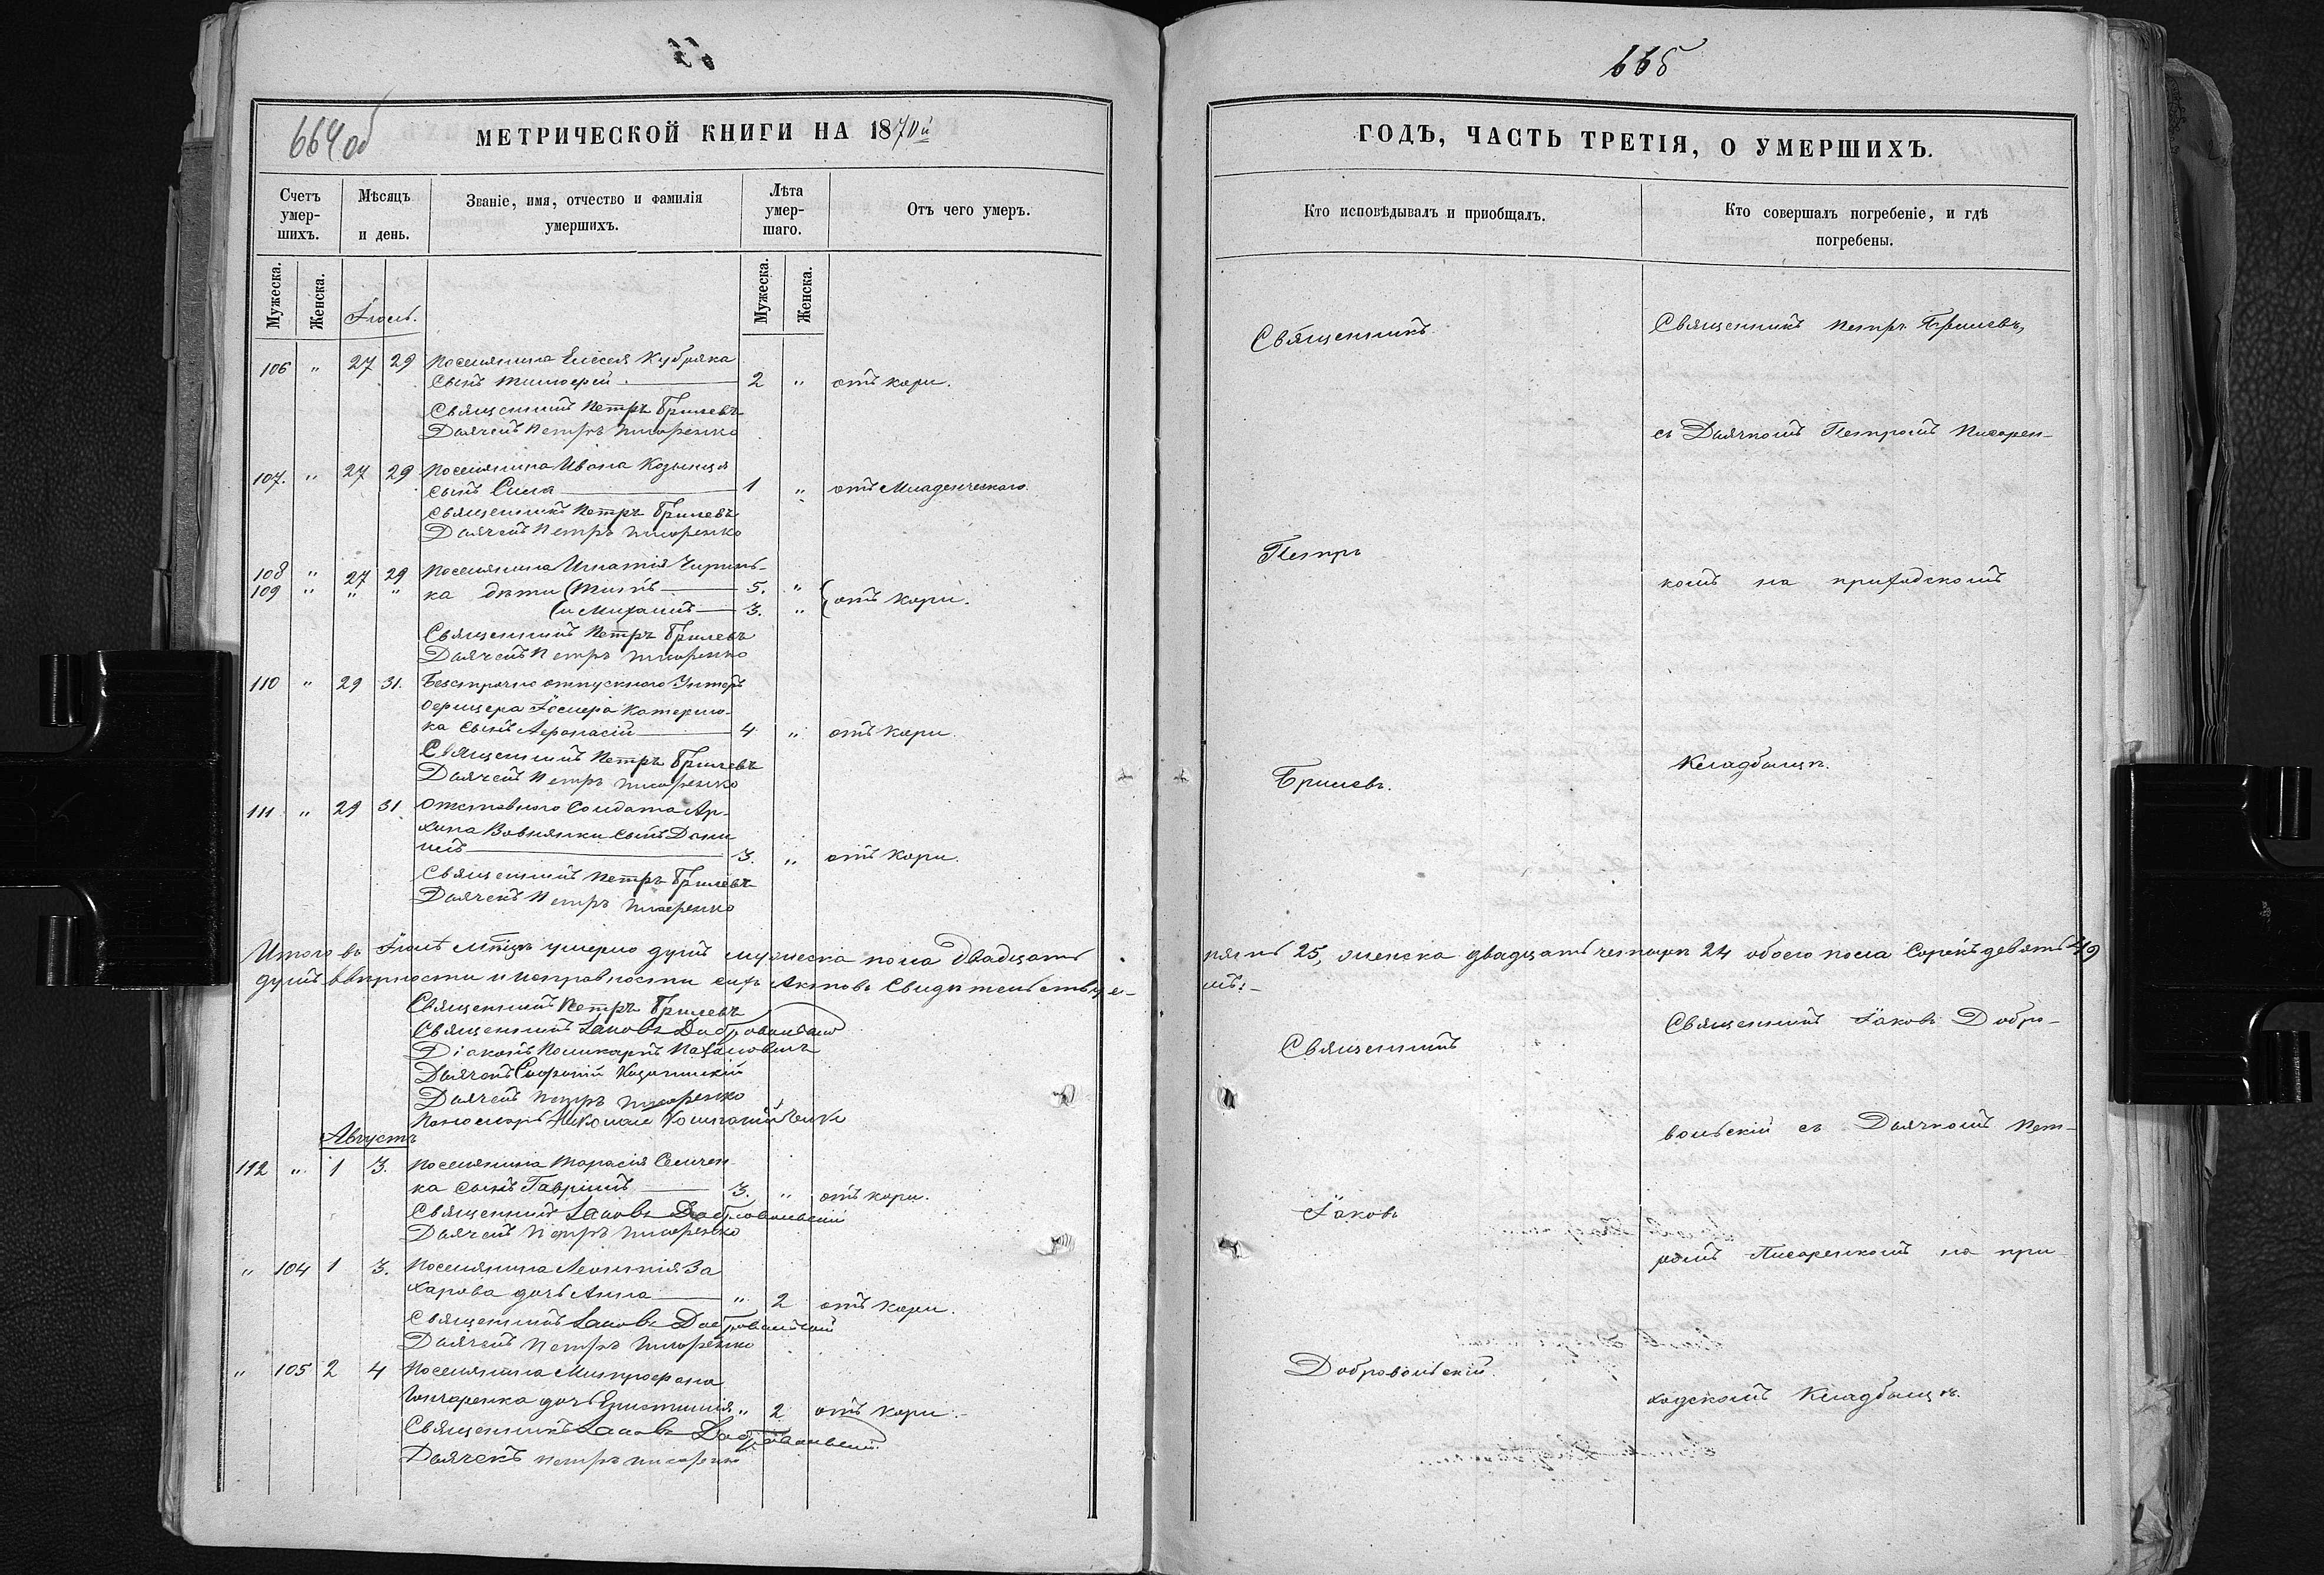 664об
МЕТРИЧЕСКОЙ КНИГИ НА 1870й
Счетъ умер-шихъ.
Мѣсяцъ и день.
Званіе, имя, отчество и фамилія умершихъ.
Лѣта умер-шаго.
Отъ чего умеръ.
Мужеска.
Женска.
Іюль.
Мужеска.
Женска.
106 " 27 29 Поселянина Елисея Кубряка
Сынъ Тимофей 2 " отъ кори.
Священникъ Петръ Брилевъ
Дьячекъ Петръ Писаренко
107. " 27 29 Поселянина Ивана Козинца
сынъ Сила 1 " отъ Младенческаго.
Священникъ Петръ Брилевъ
Дьячекъ Петръ Писаренко
108 " 27 29 Поселянина Игнатія Чирич-
109 " " " ка дѣти (Титъ 5. "
(и Михаилъ 3. " отъ кори.
Священникъ Петръ Брилевъ
Дьячекъ Петръ Писаренко
110 " 29 31. Безсрочно отпускного Унтеръ
офицера Іосифа Катерино-
ка сынъ Афонасій 4 " отъ кори.
Священникъ Петръ Брилевъ
Дьячекъ Петръ Писаренко
111 " 29 31. Отставного Солдата Ар-
хипа Вовнянки сынъ Дани
илъ 3. " отъ кори.
Священникъ Петръ Брилевъ
Дьячекъ Петръ Писаренко
Итого въ Іюлѣ мѣсяцѣ умерло душъ мужеска пола двадцать
душъ вѣрности и исправности сихъ Актовъ Свидѣтельствуе-
Священникъ Петръ Брилевъ
Священникъ Іаковъ Добровольскій
Діаконъ Поликарпъ
Дьячекъ Софроній
Дьячекъ Петръ Писаренко
Пономарь Николай
Августъ
112 " 1 3. Поселянина Тарасія Семен-
ка сынъ Гавріилъ 3. " отъ кори.
Священникъ Іаковъ Добровольскій
Дьячекъ Петръ Писаренко
" 104 1 3. Поселянина Леонтія За
харова дочь Анна " 2 отъ кори.
Священникъ Іаковъ Добровольскій
Дьячекъ Петръ Писаренко
" 105 2 4 Поселянина Митрофана
Гончаренка дочь Христинія " 2 отъ кори.
Священникъ Іаковъ Добровольскій
Дьячекъ Петръ Писаренко
665
ГОДЪ, ЧАСТЬ ТРЕТІЯ, О УМЕРШИХЪ.
Кто исповѣдывалъ и пріобщалъ.
Кто совершалъ погребеніе, и гдѣ погребены.
Священникъ
Петръ
Брилевъ.
Священникъ Петръ Брилевъ,
съ Дьячкомъ Петромъ Писарен-
комъ на приходскомъ
Кладбищѣ.
пять 25, женска двадцать четыре 24 обоего пола Сорокъ девять 49
мъ:-
Священникъ
Іаковъ
Добровольскій.
Священникъ Іаковъ Добро-
вольскій съ Дьячкомъ Пет-
ромъ Писаренкомъ на при
ходскомъ Кладбищѣ.